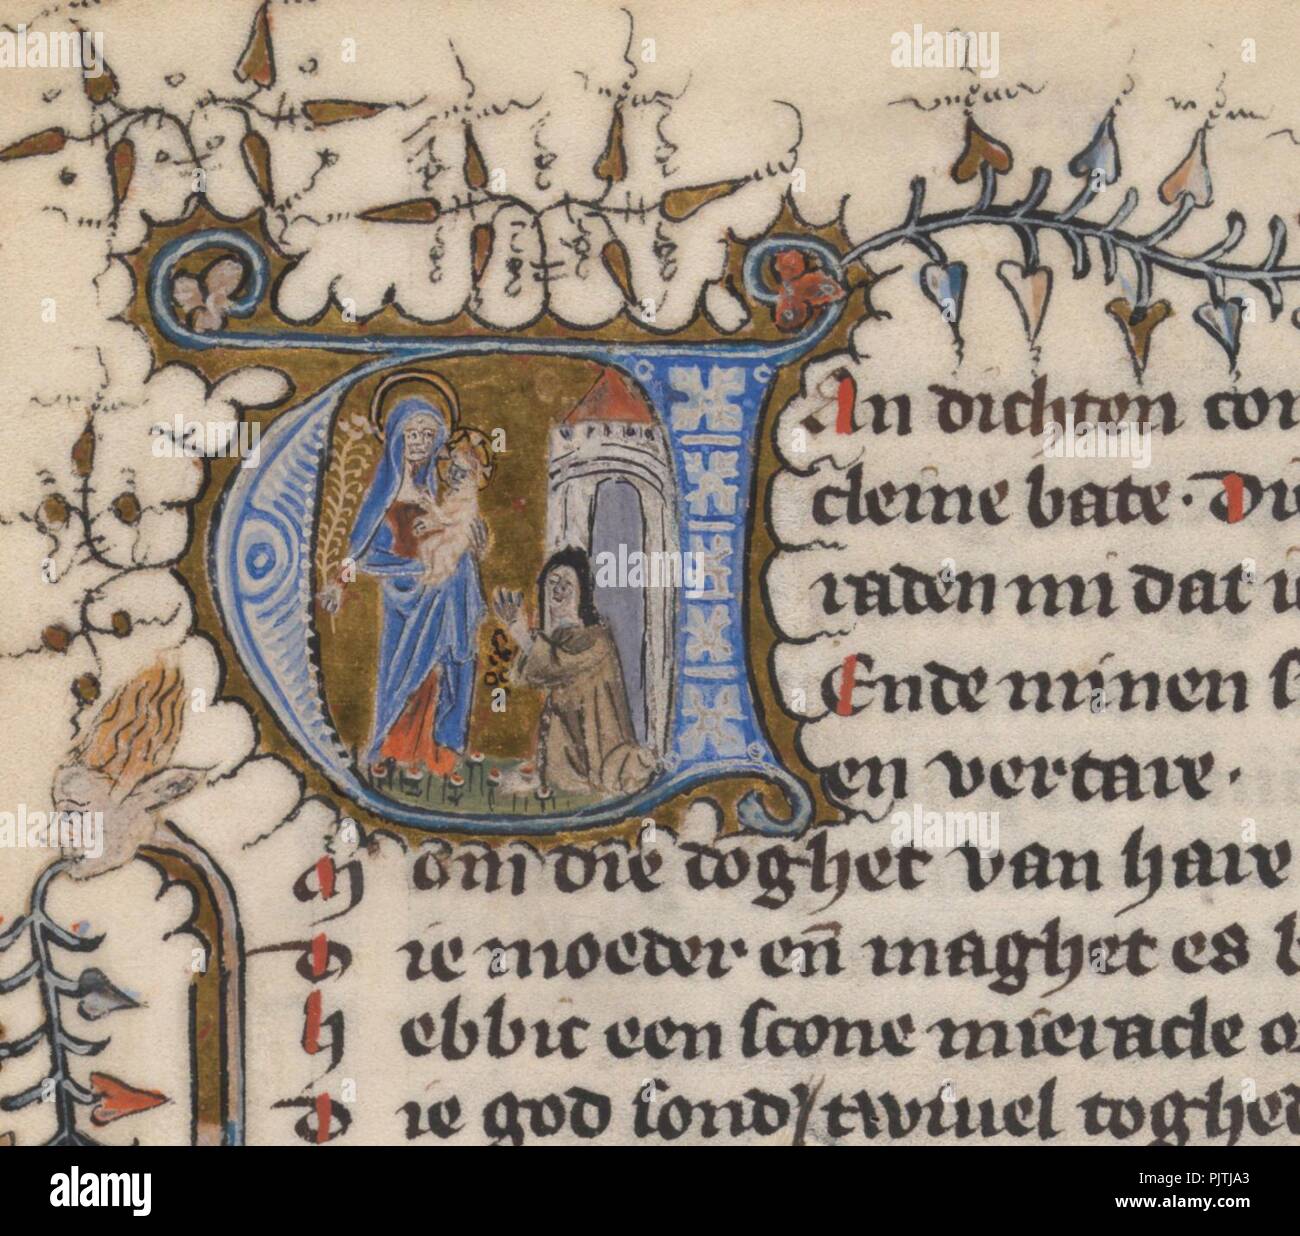 Van dichten comt
cleine bate. Di
raden mi dat ic
Ende minen s
en vertare.
Maer om die doghet van hare
Die moeder en̄ maghet es b
Hebbic een scone mieracle o
Die god sond twivel toghed
alamy stock photo
PJTJA3
www.alamy.com